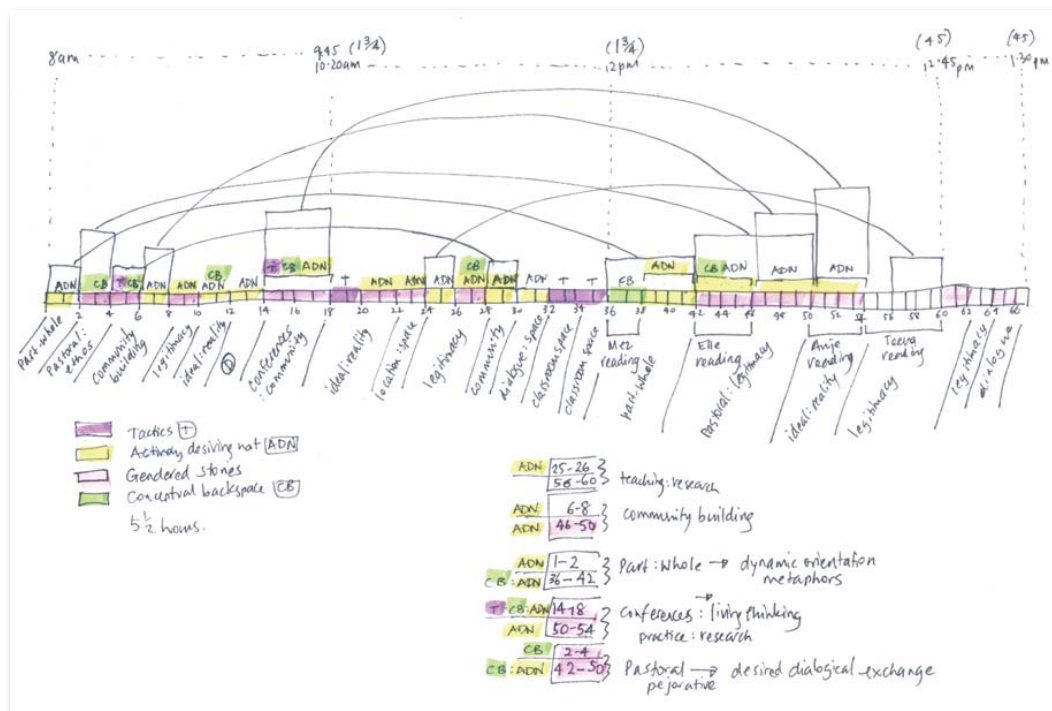 8am
9.45 (1 3/4)
10.20am
(1 3/4)
12pm
(45)
12.45pm
(45)
1.30pm
ADN CB T CB ADN ADN ADN CB ADN T CB ADN T ADN ADN ADN CB ADN ADN ADN T T CB ADN CB ADN ADN ADN
2 4 6 8 10 12 14 16 18 20 22 24 26 28 30 32 34 36 38 40 42 44 46 48 50 52 54 56 58 60 62 64 66
part-whole
pastoral: ethos
community building
legitimacy
ideal:reality
T
conferences : community
ideal:reality
location:space
legitimacy
community
dialogue:space
classroom space
classroom space
Mez reading
part:whole
Elle reading
pastoral:legitimacy
Anje reading
ideal:reality
Teeva reading
legitimacy
legitimacy
dialogue
Tactics T
Actively desiring not ADN
Gendered stories
Conceptual backspace CB
5 1/2 hours.
ADN 25-26
58-60
teaching:research
ADN 6-8
ADN 46-50
community building
ADN 1-2
CB:ADN 36-42
Part:Whole → dynamic orientation
metaphors
T-CB:ADN 14-18
ADN 50-54
Conferences : living thinking
practice:research
CB 2-4
CB:ADN 42-50
Pastoral → desired dialogical exchange
pejorative